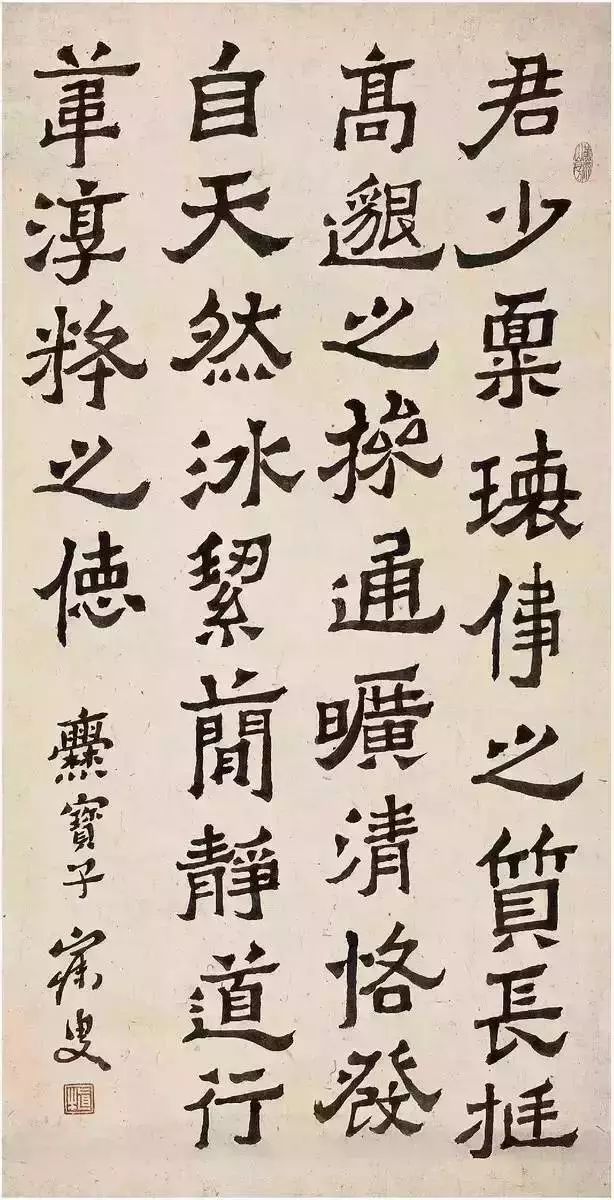 君少稟瓌偉之質長挺
高邈之操通曠清恪發
自天然冰絜簡靜道行
葦淳粹之德
爨寶子 寐叟